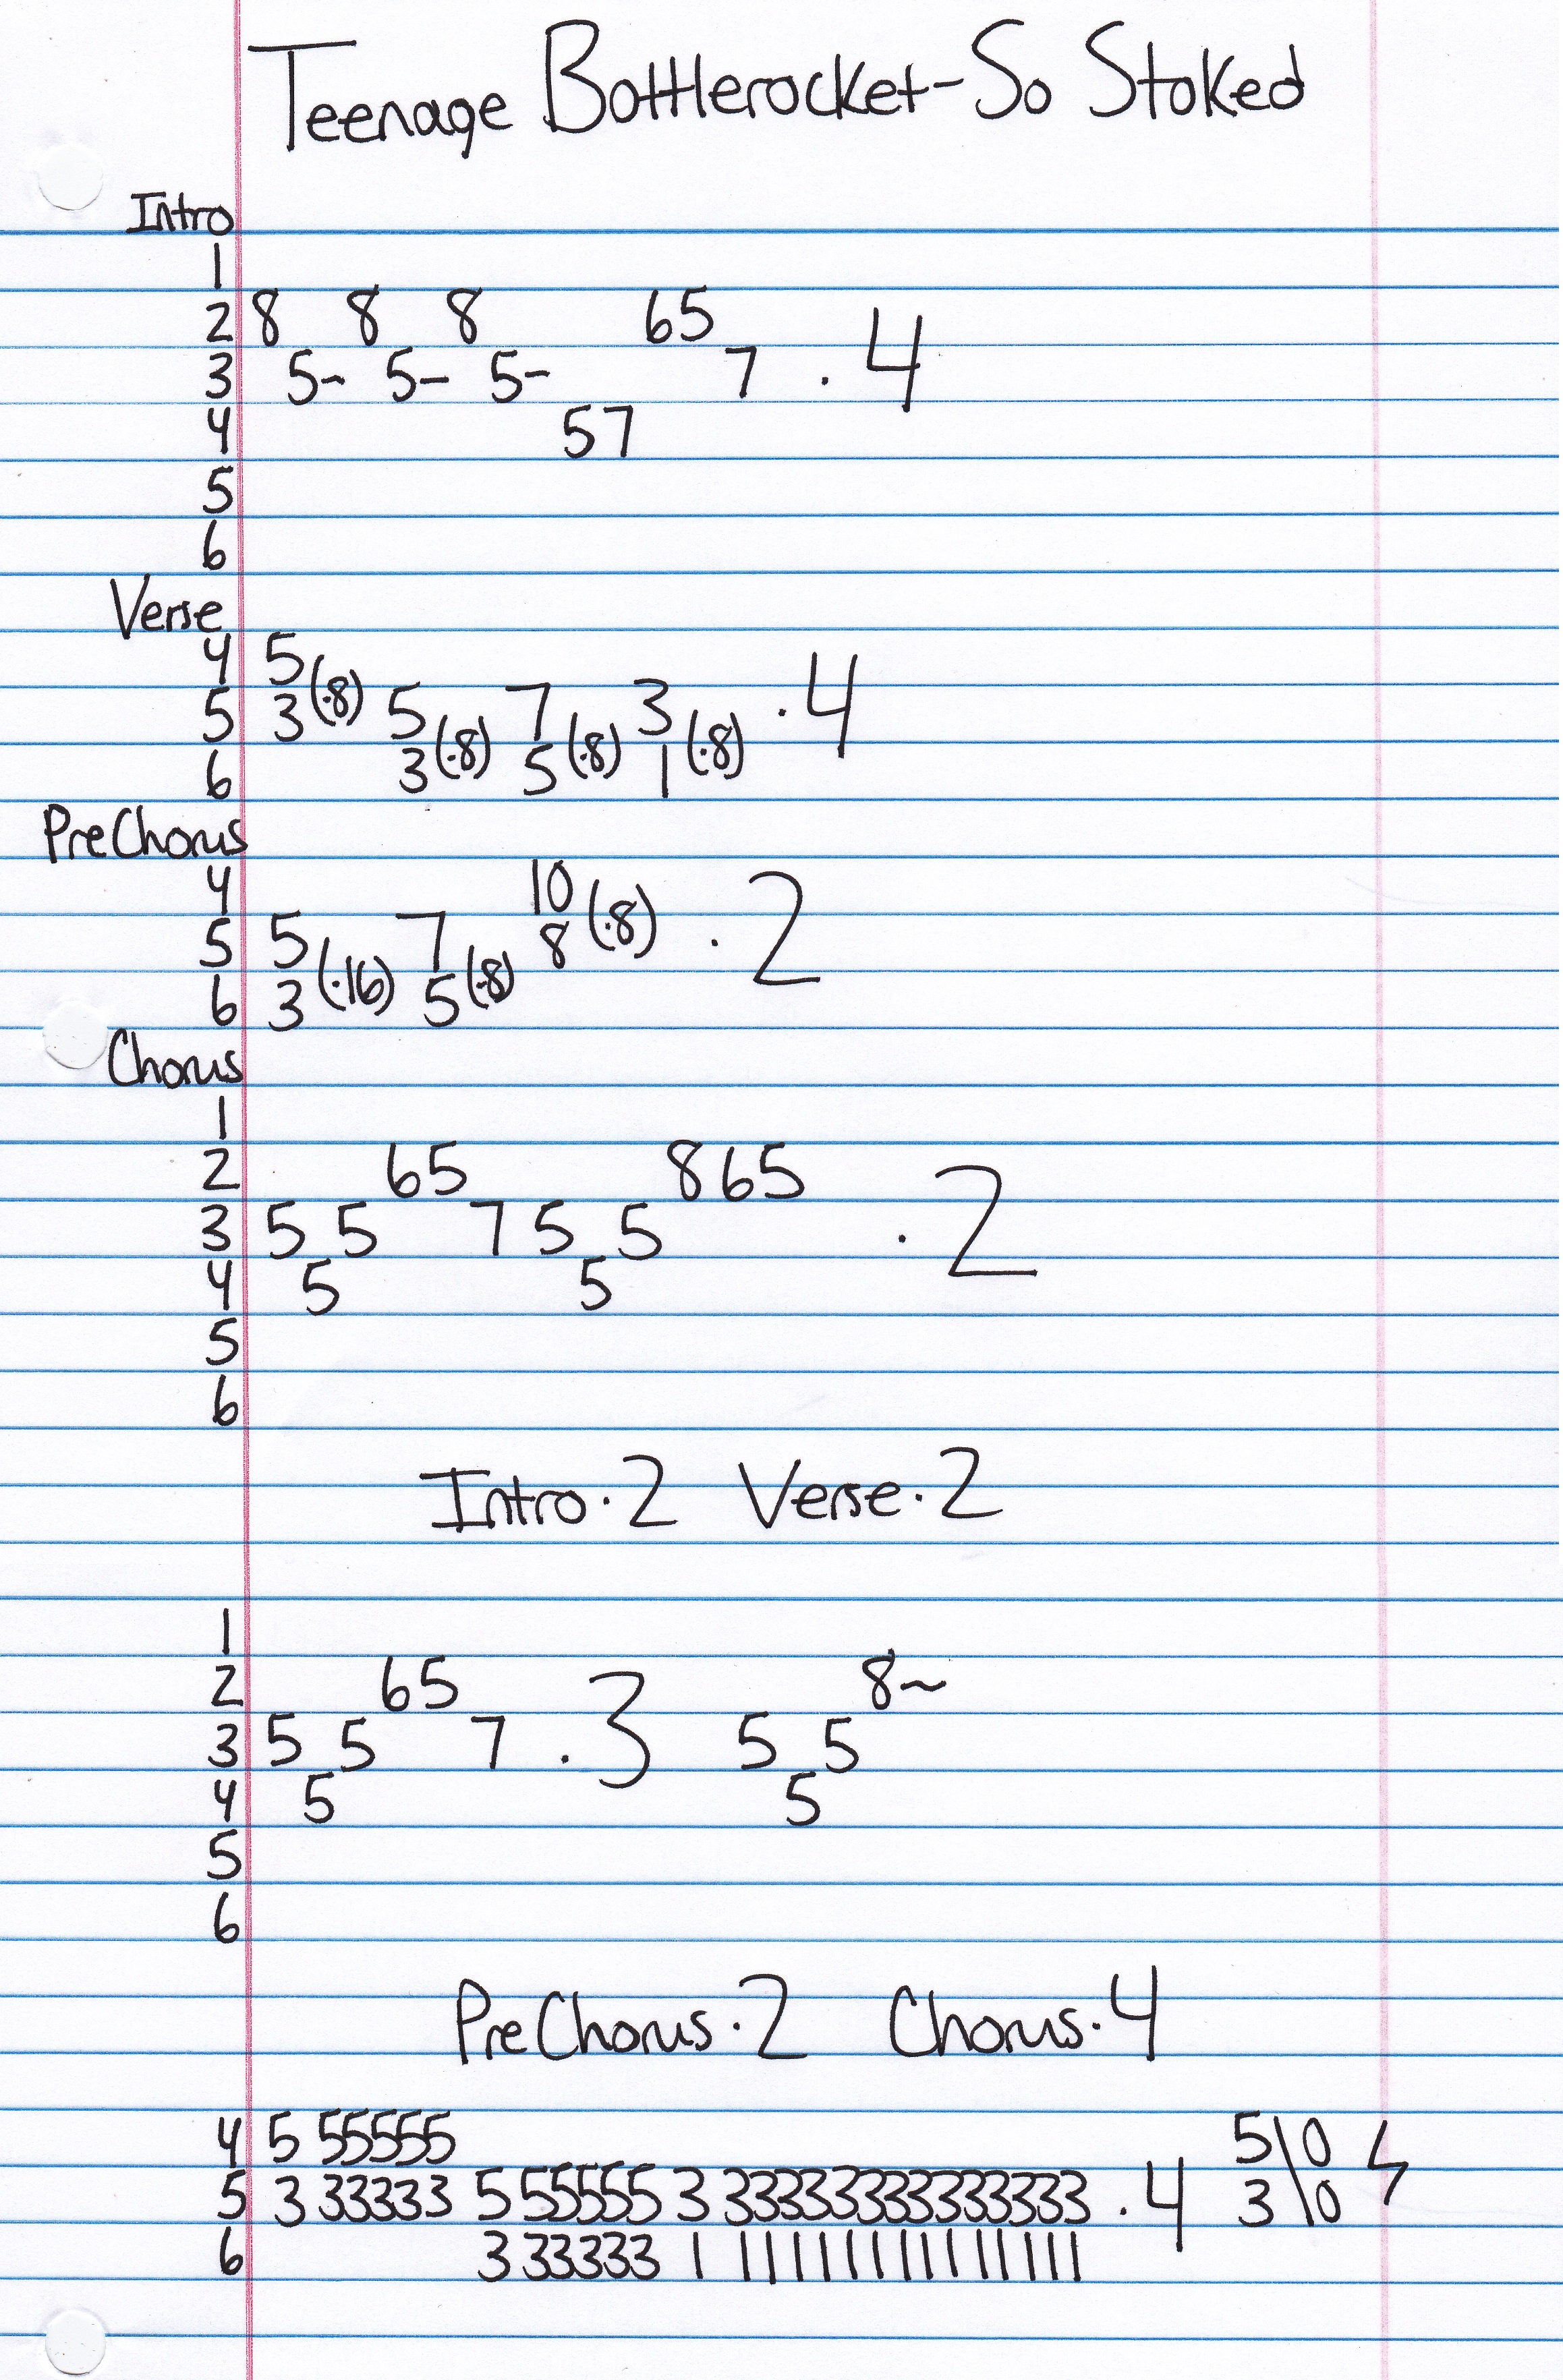 Teenage Bottlerocket - So Stoked
Intro
1
2 8 8 8 65
3 5~ 5~ 5~ 7 . 4
4 57
5
6
Verse
4 5
5 3 (·8) 5 7 3 · 4
6 3 (·8) 5 (·8) 1 (·8)
PreChorus
4 10
5 5 7 8 (·8) · 2
6 3 (·16) 5 (·8)
Chorus
1
2 65 865
3 5 5 7 5 5 · 2
4 5 5
5
6
Intro · 2 Verse · 2
1
2 65 8~
3 5 5 7 · 3 5 5
4 5 5
5
6
PreChorus · 2 Chorus · 4
4 5 55555 5\0
5 3 33333 5 55555 3 33333333333333 · 4 3\0
6 3 33333 1 1111111111111